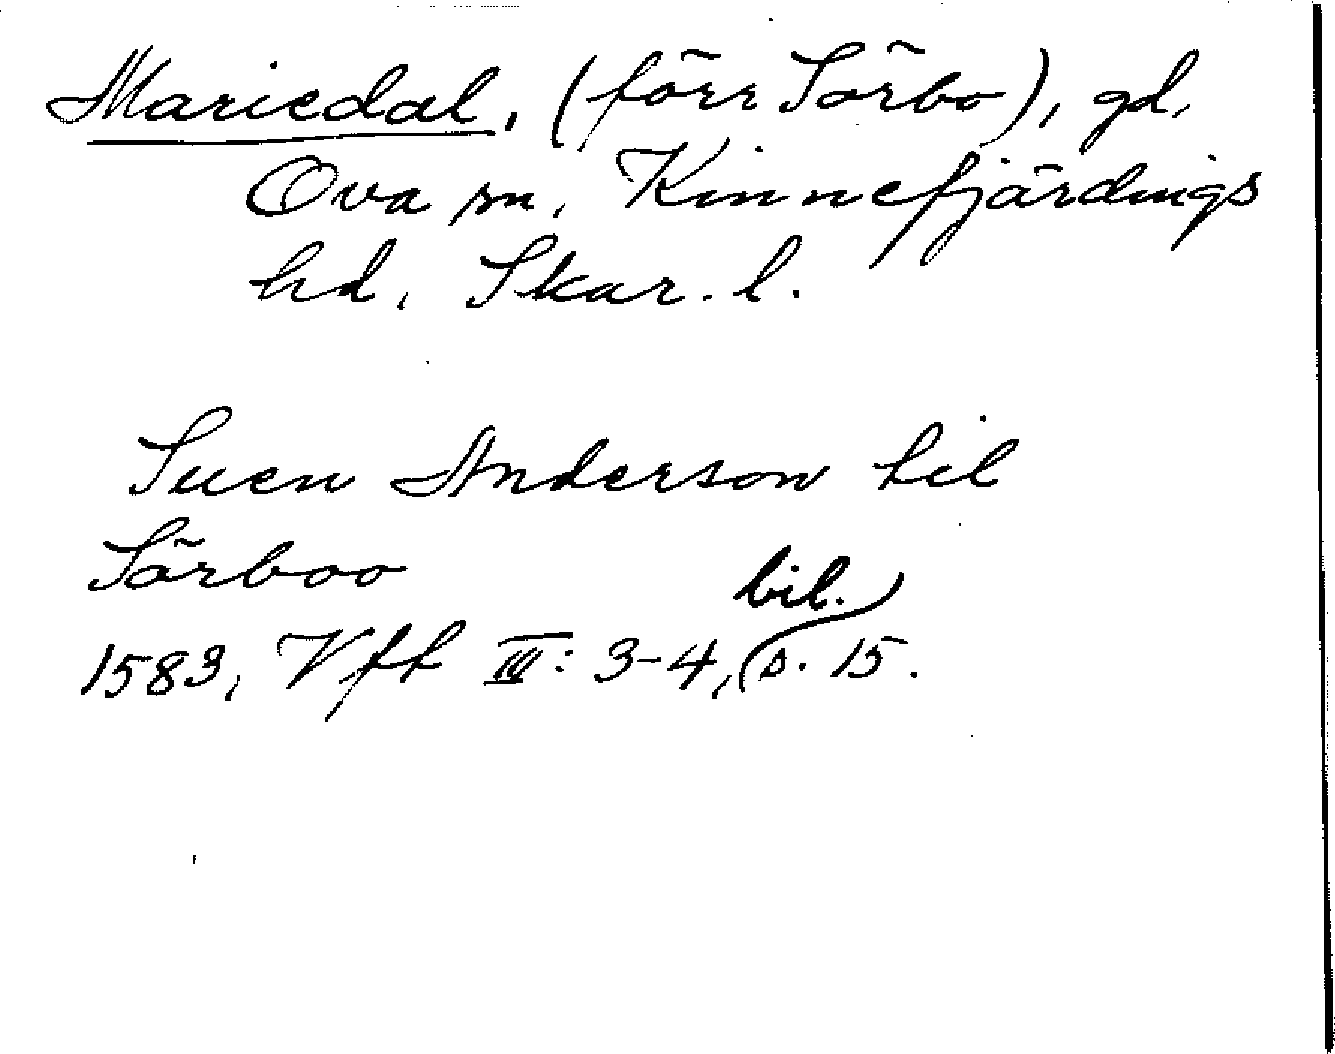 Mariedal, (förr Sörbo), gd,
Ova sn, Kinnefjärdings
hd, Skar. l.
Suen Anderson til
Sörboo
1583, Vft III: 3-4, bil. s. 15.